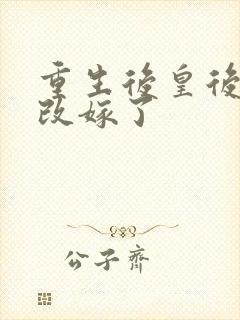 重生後皇後
改嫁了
公子齊